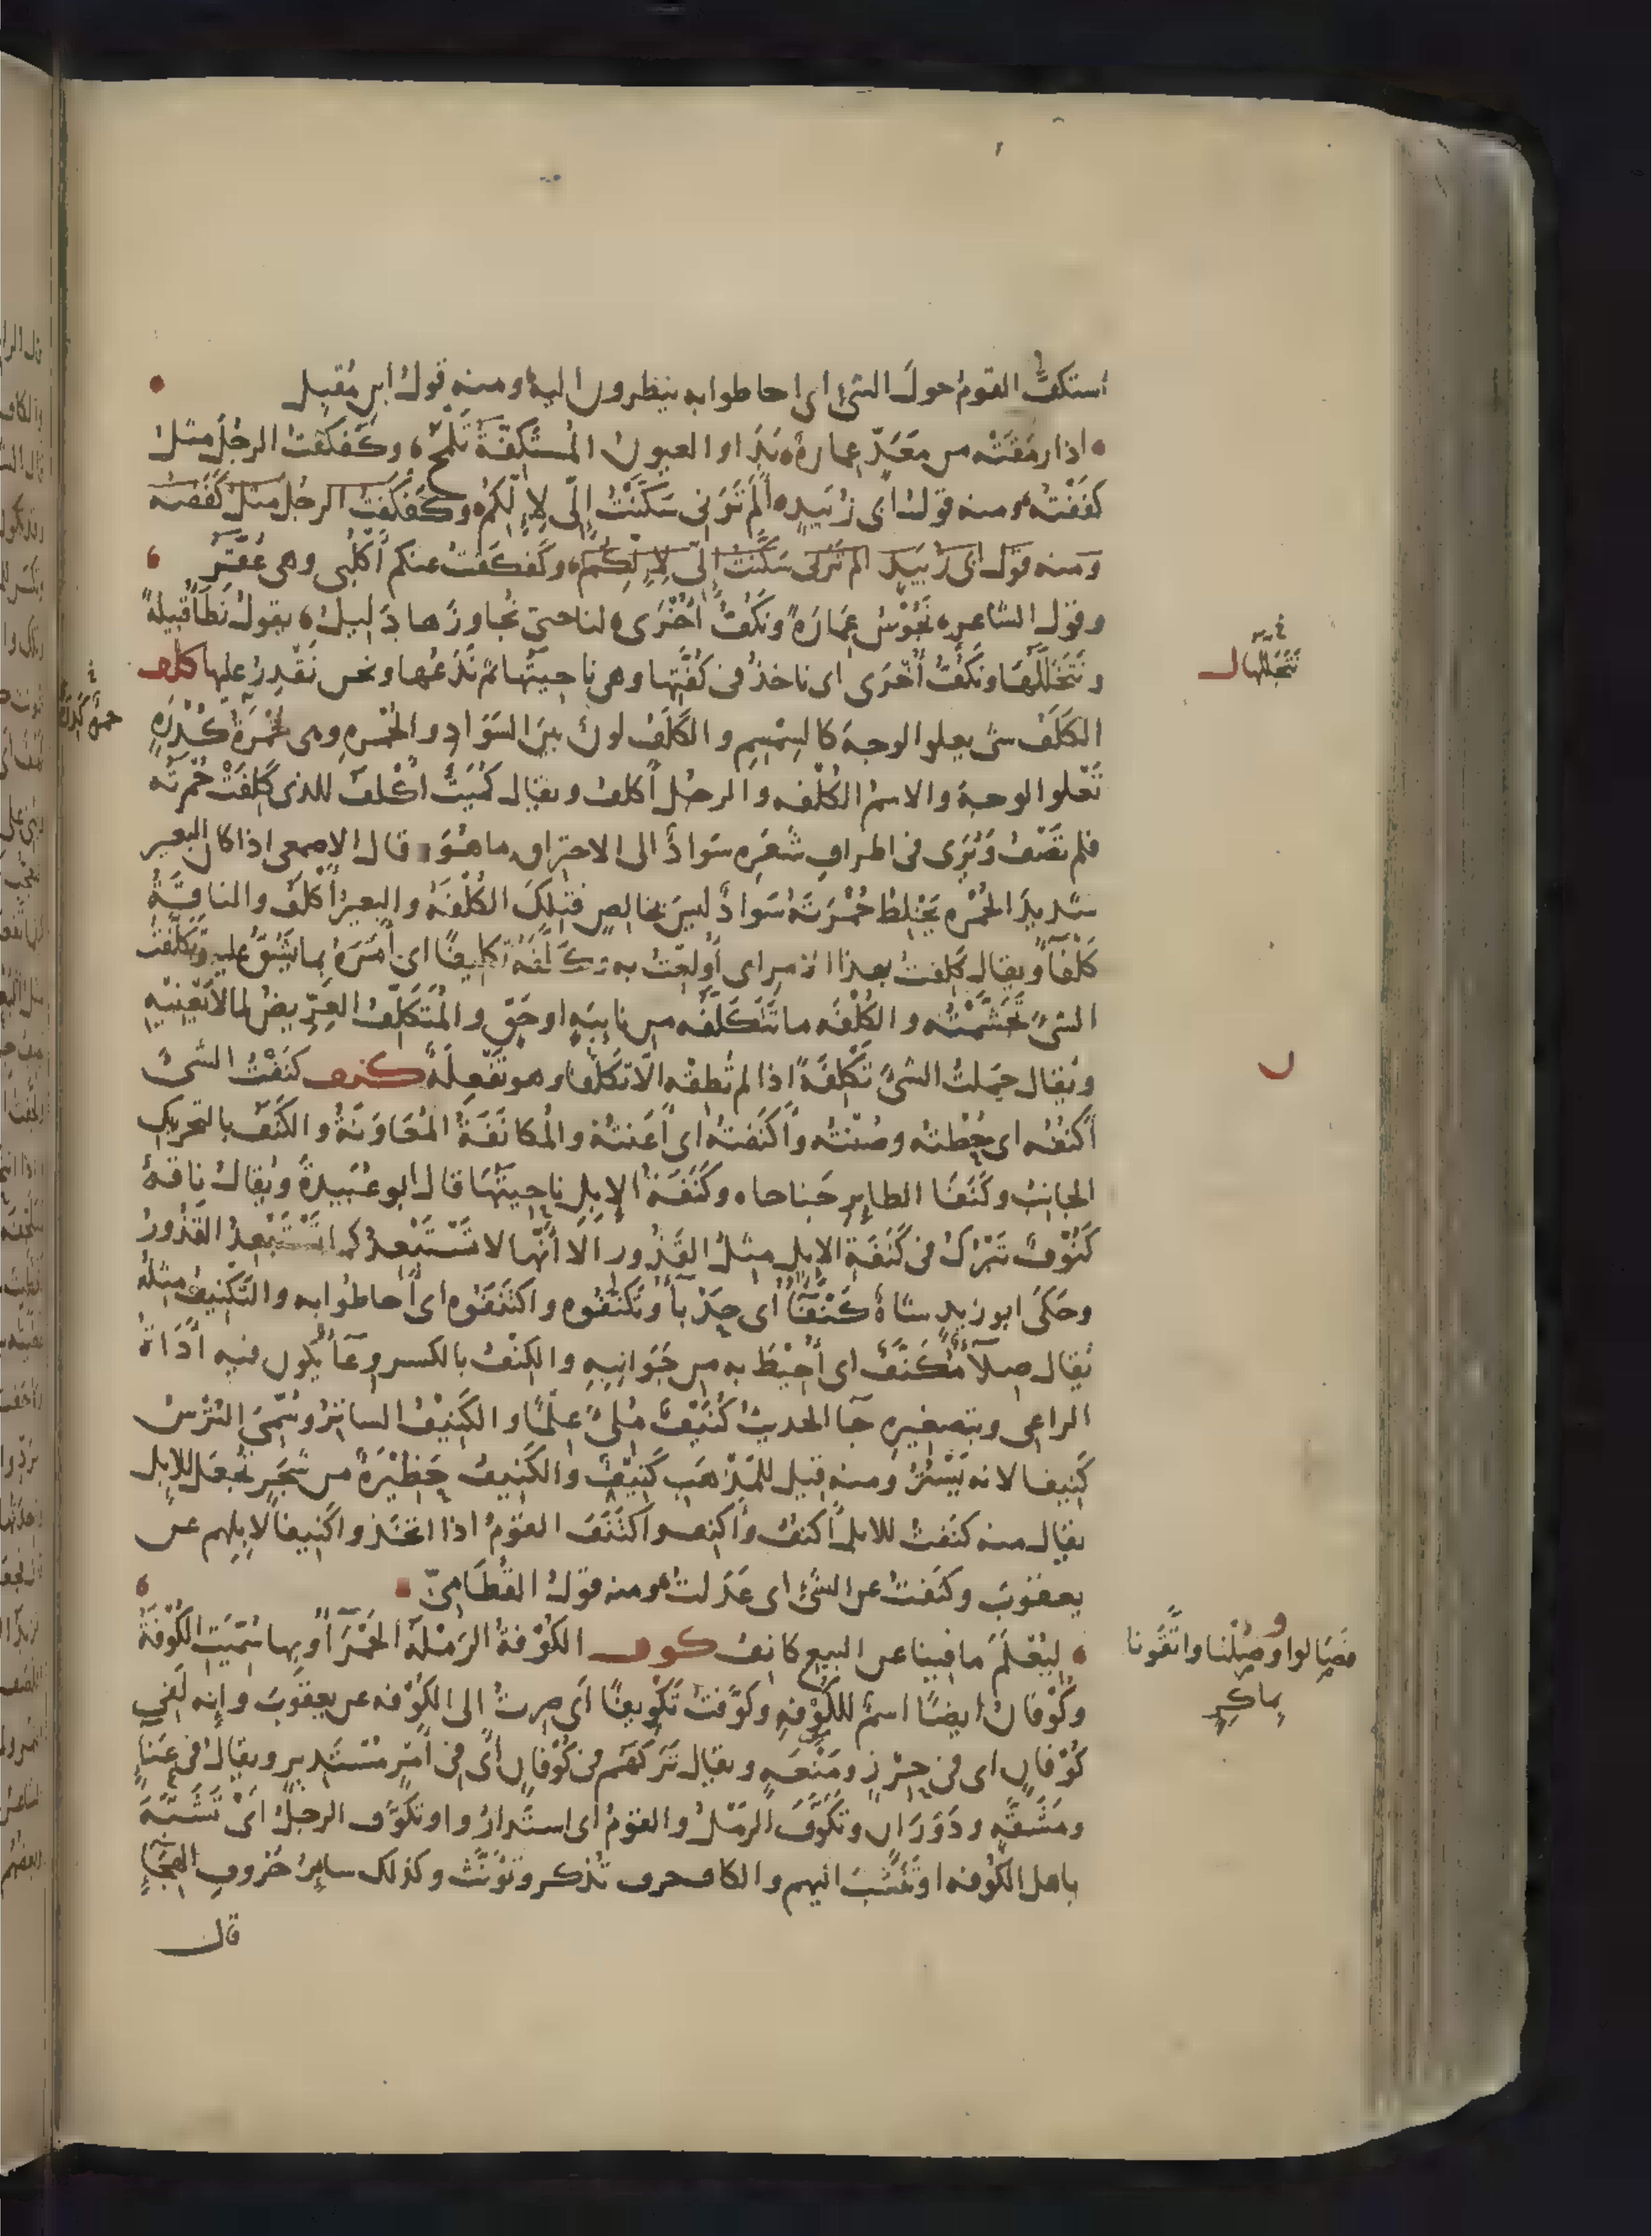 استكفَّ القومُ حولَ الشئِ اى احاطوا به ينظرون اليه ومنه قولُ ابن مُقبِل
اذا رمَقَتْه من مَعَدّ عِمارةٌ بَدَا والعيونُ المُستَكِفّةُ تَلْمَحُ وكَفكَفتُ الرجُلَ مثلُ
كفَفْتُه ومنه قولُ ابى زُبَيدٍ أَلَم تَرَنى سَكَّنْتُ إِلّى لإِلّكُم وكَفكَفتُ الرجُلَ مثلُ كَفَفتُه
ومنه قول ابى زُبَيد الم تَرَنى سَكَّنتُ إلّى لإلّكم وكَفكَفتُ عنكم أَكْلُبى وهى عُقَّرُ
وقول الشاعر نَجُوْسُ عِمَارَةً ونَكُفُّ أُخْرَى لنا حتى نُجاوزَها دَليلُ يقولُ نَطَأُ قبيلةً
ونَتَخَلَّلُها ونَكُفُّ أُخْرَى اى ناخذُ فى كُفَّتِها وهى ناحِيَتُها ثم نَدَعُها ونحن نَقْدِرُ عليها كلف
الكَلَفُ شئ يعلوا الوجهَ كالسِمْسِمِ والكَلَفُ لونٌ بينَ السَوَادِ والحُمْرهِ وهى حُمْرَةٌ كَدِرَةٌ
تَعْلوا الوجهَ والاسمُ الكُلْفه والرجُلُ أكلفُ ويقال كُمَيتٌ أَكْلفُ للذى كَلِفَتْ حُمْرتُه
فلم تَصْفُ وتُرَى فى اطرافِ شَعَرِه سَوادٌ الى الاحتراقِ ما هُوَ قال الاصمعى اذا كان البعير
شديدَ الحُمْرهِ يَخْلِطُ حُمْرَتَهُ سَوادٌ ليسَ بخالِصٍ فتِلكَ الكُلْفَهُ والبعيرُ أكلَفُ والناقةُ
كَلْفآءُ ويقال كَلِفتُ بهذا الامرِ اى أُولِعتُ به وكَلَّفَهُ تكليفًا اى أَمَرَهُ بما يَشُقُّ عليه وتَكلَّفتُ
الشئَ تَجَشَّمْتُه والكُلْفَه ما تَتَكَلَّفَه من نايبَهٍ او حَقٍّ والمُتَكَلِّفُ العِرِّيضُ لما لا يَعْنِيْهِ
ويُقال حَمَلتُ الشئَ تَكْلِفَةً اذا لم تُطِقْه الّا تكَلُّفًا وهو تَفْعِلَةٌ كنف كنَفْتُ الشئَ
أكنُفُه اى حُطْتُه وصُنْتُه وأَكْنَفتُه اى أعَنتُهُ والمُكانَفَةُ المُعَاوَنَةُ والكَنَفُ بالتحريكِ
الجانبُ وكَنَفَا الطايرِ جَناحاه وكَنَفَهُ الإبِلِ ناحِيتُها قال ابو عُبَيدةَ ويُقالُ ناقهٌ
كَنُوْفٌ تَبْرُكُ فى كَنَفَةِ الابِلِ مِثلُ القَذورِ الّا أَنّها لا تَسْتَبْعِدُ كما تَسْتَبْعِدُ القَذُورُ
وحَكَى ابو زيدٍ شاةٌ كَنْفآءُ اى حَدْبآءُ وتَكَنَّفُوه واكتَنَفُوه اى أحاطوا به والتَكْنِيفُ مِثلُهُ
يُقال صِلآءٌ مُكَنَّفٌ اى أُحِيْطَ به من جَوَانِبِهِ والكِنْفُ بالكسرِ وِعآءٌ يكون فيه أَدَاةُ
الراعى وبتصغيرِه جآ الحديثُ كُنَيْفٌ مُلِئَ عِلْمًا والكَنِيْفُ الساتِرُ وسُمّىَ التُرْسُ
كَنِيفا لانه يَسْتُرُ ومنه قيل للمَذْهَبِ كَنِيْفٌ والكَنِيفُ حَظِيْرَةٌ من شَجَرٍ تُجعَلُ للابِل
يقال منه كنَفتُ للابلِ أكنُفُ وأكنِف واكتَنَفَ القومُ اذا اتخَذوا كَنِيفًا لإِبِلِهم عن
يعقوبَ وكنَفتُ عن الشئِ اى عَدَلتُ ومنه قولُ القُطَامىّ
لِيُعْلَمَ ما فينا عن البيعِ كانِفُ كوف الكُوْفةُ الرَمْلةُ الحَمْرآءُ وبها سُمّيَتِ الكُوْفَةُ
وكُوْفانُ ايضًا اسمٌ للكُوْفهِ وكوَّفتُ تَكْوِيفًا أى صِرتُ الى الكُوْفه عن يعقوبَ وإنه لَفى
كُوْفانٍ اى فى حِرْزٍ ومَنْعَهٍ ويقال تَرَكهَم فى كُوْفانٍ أى فى أَمْرٍ مُسْتَديرٍ ويقالُ فى عَنآءٍ
ومَشَقّهٍ ودَوَرَانٍ وتَكَوَّفَ الرَمْلُ والقومُ اى استَدارُوا وتكوَّف الرجلُ اىْ تَشَبَّهَ
باهل الكُوْفه او تَنَسَّبَ اليهم والكاف حرف تُذكر وتؤنَّث وكذلك سايرُ حُروفِ الهِجَآءِ
قال
نَتَخَلّلها ل
ل
فصَالوا وصُلْنا واتَّقَونا
بماكِرٍ